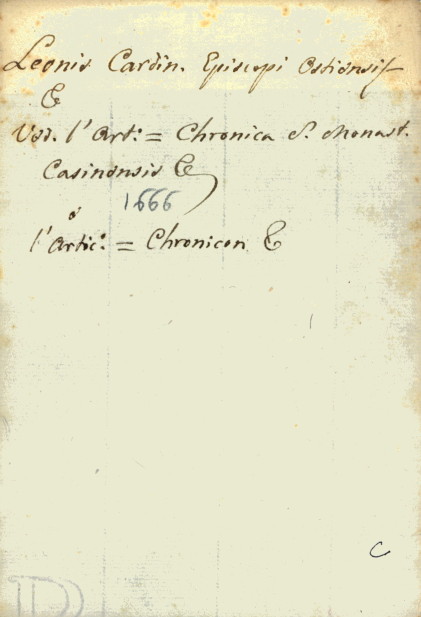 Leonis Cardin. Episcopi Ostiensis
&
Ved. l'Art.º = Chronica S. Monast.
Casinensis &
1666
o'
l'Artic.º = Chronicon &
C